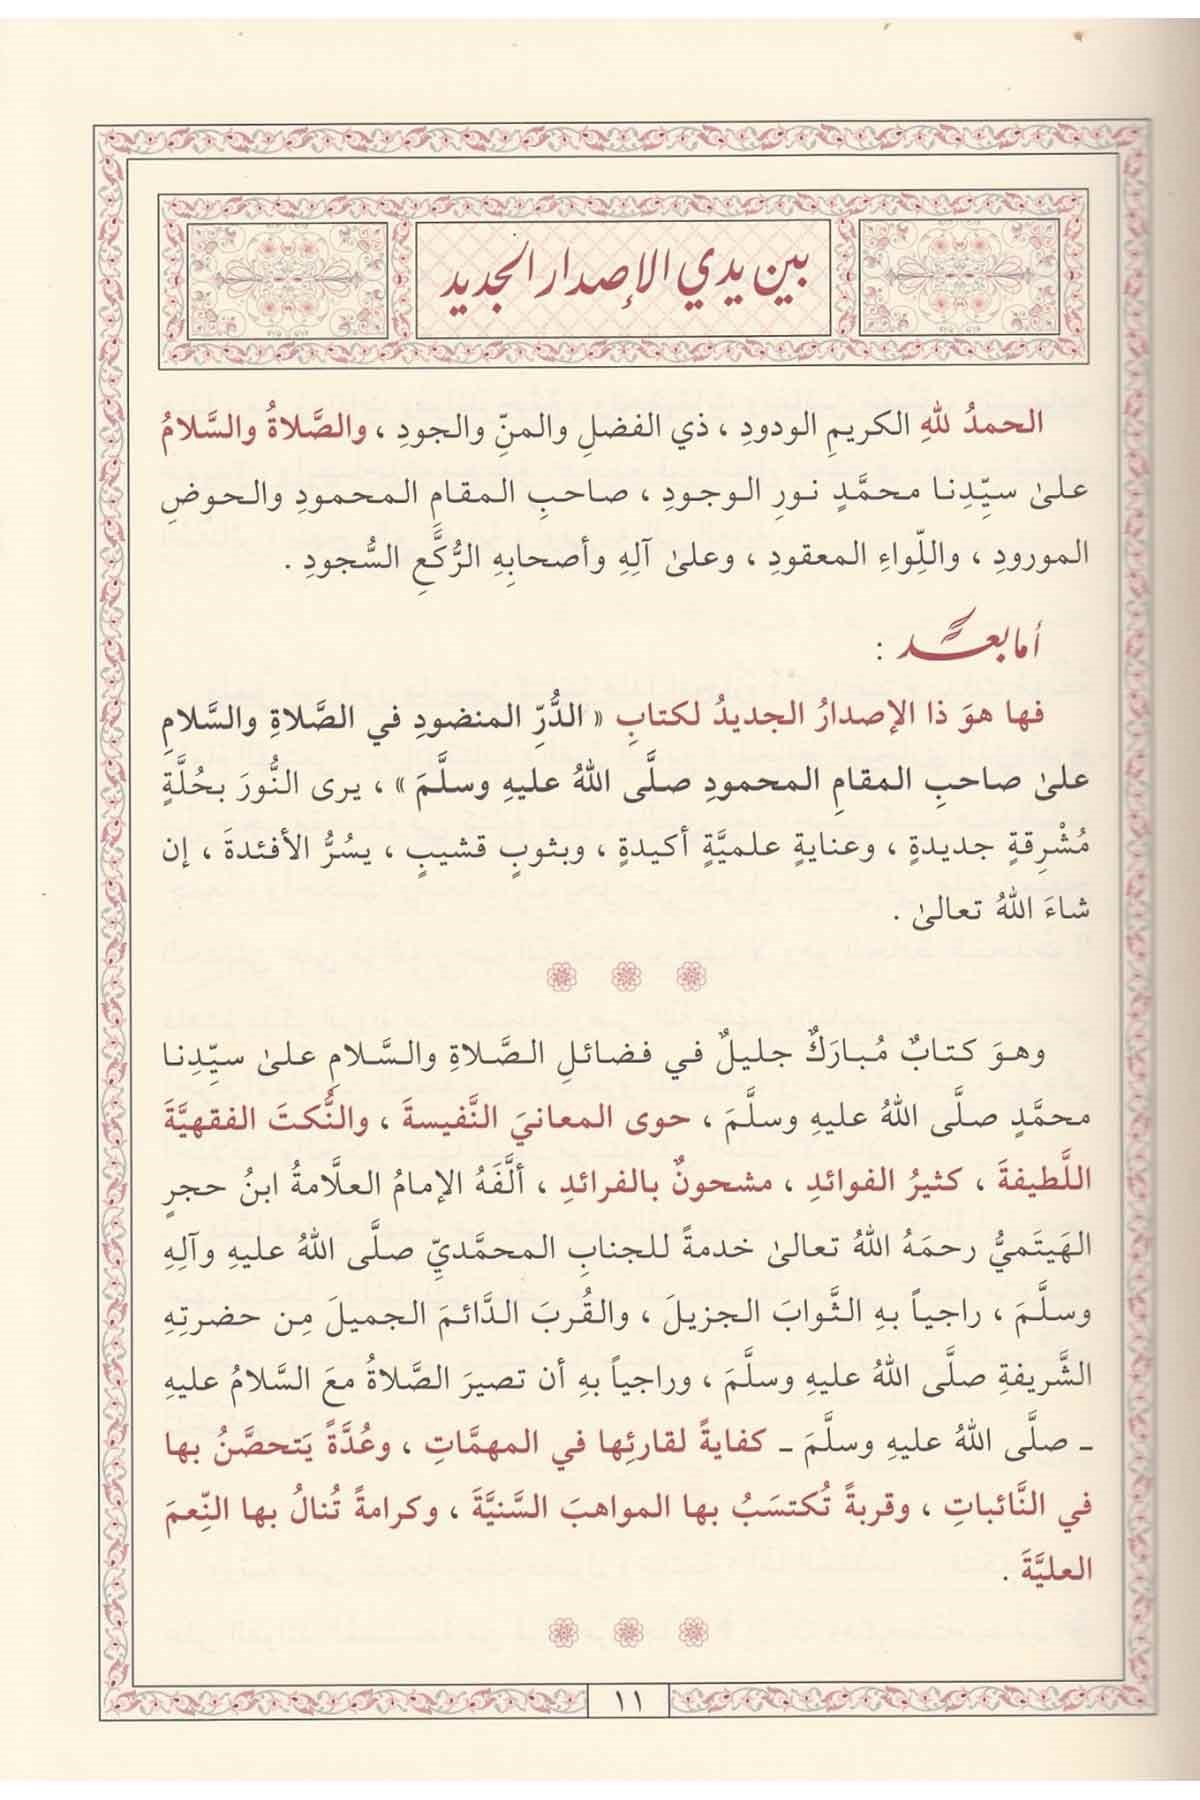 بين يدي الإصدار الجديد
الحمدُ للهِ الكريمِ الودودِ ، ذي الفضلِ والمنِّ والجودِ ، والصَّلاةُ والسَّلامُ
علىٰ سيِّدِنا محمَّدٍ نورِ الوجودِ ، صاحبِ المقامِ المحمودِ والحوضِ
المورودِ ، واللِّواءِ المعقودِ ، وعلىٰ آلِهِ وأصحابِهِ الرُّكَّعِ السُّجودِ .
أما بعد :
فها هوَ ذا الإصدارُ الجديدُ لكتابِ « الدُّرِّ المنضودِ في الصَّلاةِ والسَّلامِ
علىٰ صاحبِ المقامِ المحمودِ صلَّى اللهُ عليهِ وسلَّمَ » ، يرى النُّورَ بحُلَّةٍ
مُشْرِقةٍ جديدةٍ ، وعنايةٍ علميَّةٍ أكيدةٍ ، وبثوبٍ قشيبٍ ، يسُرُّ الأفئدةَ ، إن
شاءَ اللهُ تعالىٰ .
وهوَ كتابٌ مُبارَكٌ جليلٌ في فضائلِ الصَّلاةِ والسَّلامِ علىٰ سيِّدِنا
محمَّدٍ صلَّى اللهُ عليهِ وسلَّمَ ، حوى المعانيَ النَّفيسةَ ، والنُّكتَ الفقهيَّةَ
اللَّطيفةَ ، كثيرُ الفوائدِ ، مشحونٌ بالفرائدِ ، ألَّفَهُ الإمامُ العلَّامةُ ابنُ حجرٍ
الهَيتَميُّ رحمَهُ اللهُ تعالىٰ خدمةً للجنابِ المحمَّديِّ صلَّى اللهُ عليهِ وآلِهِ
وسلَّمَ ، راجياً بهِ الثَّوابَ الجزيلَ ، والقُربَ الدَّائمَ الجميلَ مِن حضرتِهِ
الشَّريفةِ صلَّى اللهُ عليهِ وسلَّمَ ، وراجياً بهِ أن تصيرَ الصَّلاةُ معَ السَّلامُ عليهِ
ـ صلَّى اللهُ عليهِ وسلَّمَ ـ كفايةً لقارئِها في المهمَّاتِ ، وعُدَّةً يَتحصَّنُ بها
في النَّائباتِ ، وقربةً تُكتسَبُ بها المواهبَ السَّنيَّةَ ، وكرامةً تُنالُ بها النِّعمَ
العليَّةَ .
١١